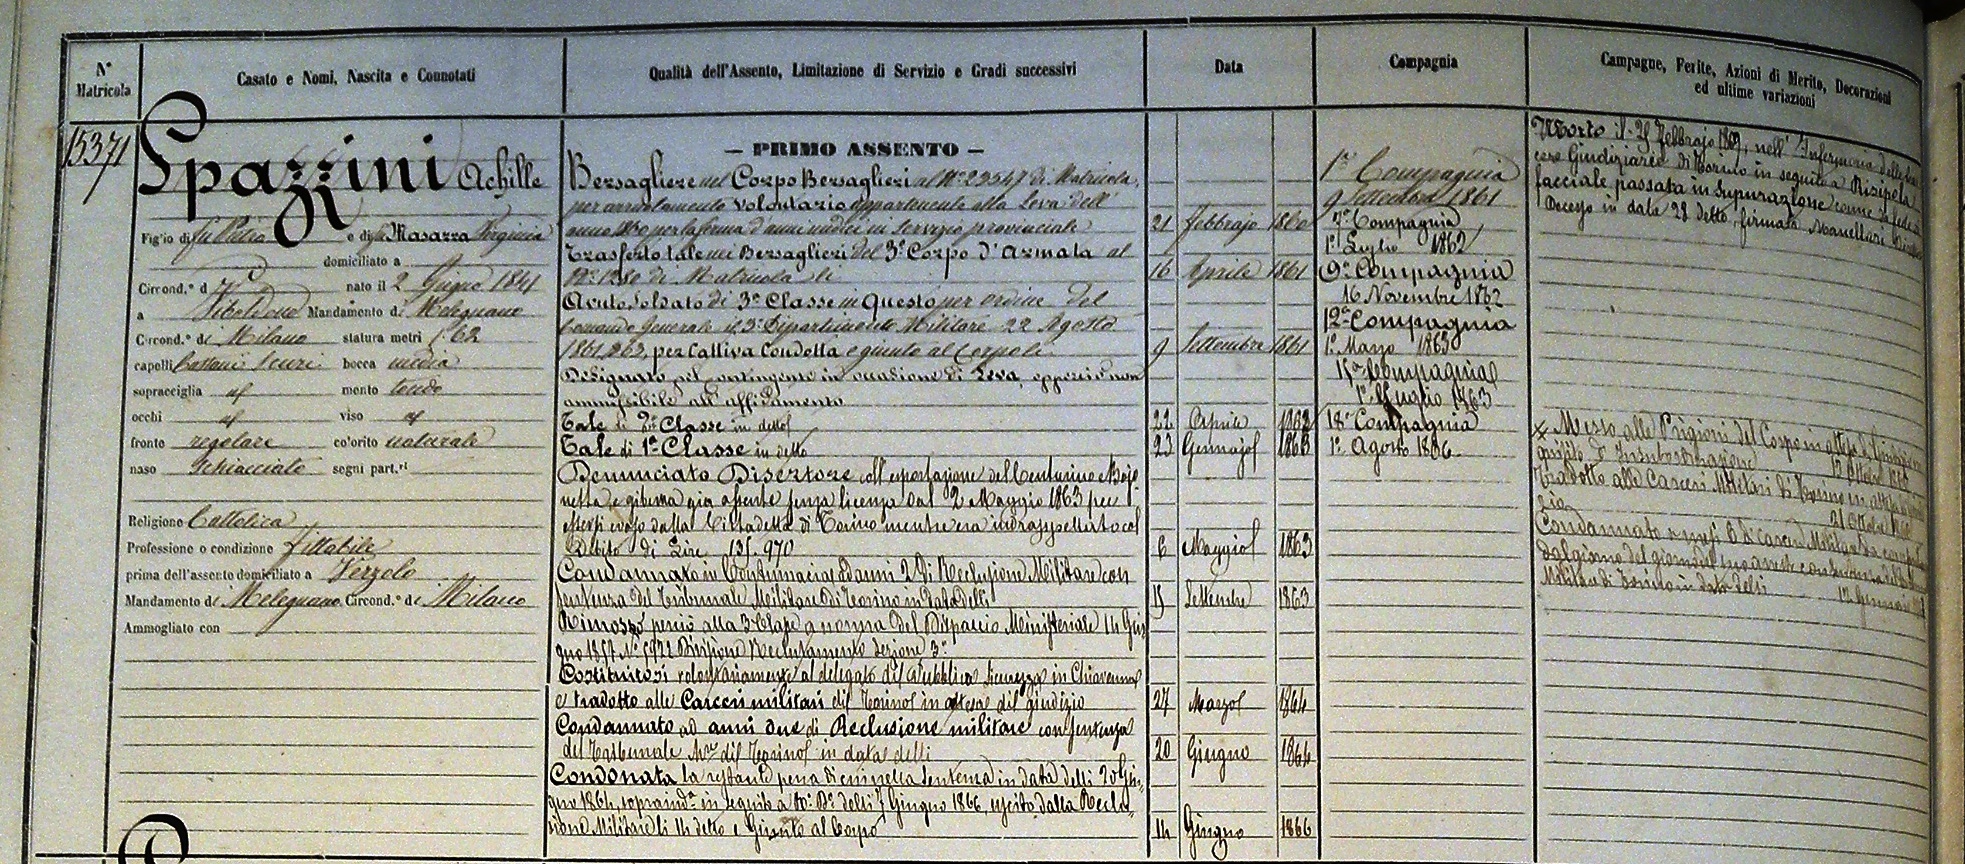 N° Matricola
Casato e Nomi, Nascita e Connotati
Qualità dell'Assento, Limitazione di Servizio e Gradi successivi
Data
Compagnia
Campagne, Ferite, Azioni di Merito, Decorazioni
ed ultime variazioni
15371
Spazzini Achille
Figlio di fu Pietro e di fu Masazza Virginia
domiciliato a
Circond.° d nato il 2 Giugno 1841
a Viboldone Mandamento di Melegnano
Circond.° di Milano statura metri 1. 62
capelli Castani scuri bocca media
sopracciglia id mento tondo
occhi id viso id
fronte regolare colorito naturale
naso schiacciato segni part.ri
Religione Cattolica
Professione o condizione fittabile
prima dell'assento domiciliato a Verzolo
Mandamento di Melegnano Circond.° di Milano
Ammogliato con
— PRIMO ASSENTO —
Bersagliere nel Corpo Bersaglieri al N° 23547 di Matricola,
per arruolamento volontario appartenente alla Leva dell'
anno per la ferma d'anni undici in servizio provinciale
21 febbrajo 1860
Trasferto tale nei Bersaglieri del 3° Corpo d'Armata al
N° 1280 di Matricola li
16 Aprile 1861
Avuto Soldato di 3a Classe in Questo per ordine del
Comando Generale il 3° Dipartimento Militare 22 Agosto
1861, per Cattiva Condotta e giunto al Corpo li
9 Settembre 1861
Designato pel contingente in occasione di Leva, epperciò non
ammissibile all'affidamento
Tale di 2a Classe in detto
22 Aprile 1862
Tale di 1a Classe in detto
23 Gennajo 1863
Denunciato Disertore coll'esportazione del Centurino Bajo-
netta, e giberna già assente senza licenza dal 2 Maggio 1863 per
essersi evaso dalla Cittadella di Torino mentre era col
Debito di Lire 970
6 Maggio 1863
Condannato in Contumacia ad anni 2 di Reclusione Militare con
sentenza del Tribunale Militare di Torino in data delli
15 Settembre 1863
Rimosso perciò alla 3a Classe a norma del Dispaccio Ministeriale 14 Giu-
gno 1857 N° 5922 Divisione Reclutamento Sezione 3a
Costituitosi volontariamente al delegato di Pubblica Sicurezza in Chiavenna
e tradotto alle Carceri militari di Torino in attesa di giudizio
27 Marzo 1864
Condannato ad anni due di Reclusione militare con sentenza
del Tribunale M.re di Torino in data delli
20 Giugno 1864
Condonata la restante pena di cui nella Sentenza in data delli 20 Giu-
gno 1864, in seguito a R.° D.° delli 7 Giugno 1866, uscito dalla Reclu-
sione Militare li 14 detto e Giunto al Corpo
14 Giugno 1866
1a Compagnia
9 Settembre 1861
7a Compagnia
1° Luglio 1862
9a Compagnia
16 Novembre 1862
12a Compagnia
1° Marzo 1863
15a Compagnia
1° Luglio 1863
18a Compagnia
1° Agosto 1866
Morto il 25 febbrajo 1867, nell'Infermeria delle
Giudiziarie di Torino in seguito a Risipola
facciale passata in Supurazione come da fede di
Decesso in data 28 detto, firmata
Messo alle Prigioni del Corpo in attesa di
giudizio d'Insubordinazione
Tradotto alle Carceri Militari di Torino in attesa di
21 Ottobre
Condannato a mesi 6 di carcere Militare
dal giorno del
Militare di Torino in data delli